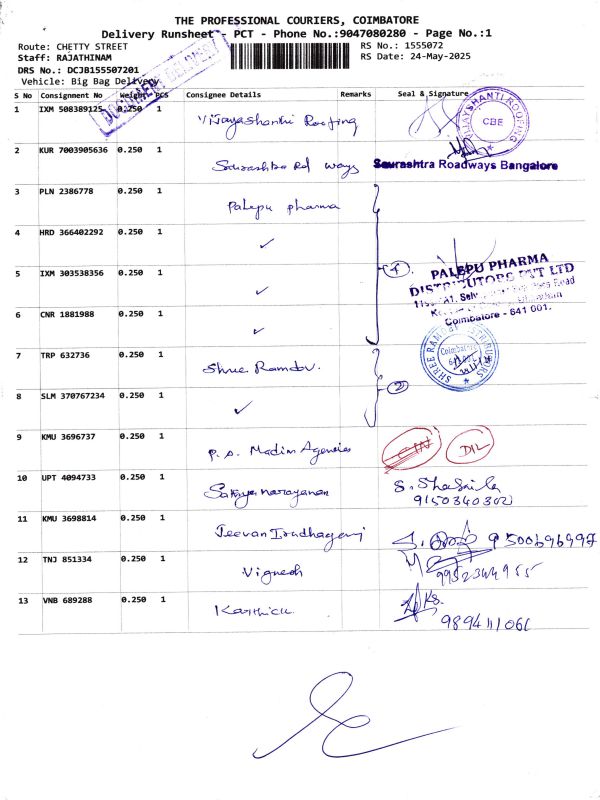 THE PROFESSIONAL COURIERS, COIMBATORE
Delivery Runsheet - PCT - Phone No.:9047080280 - Page No.:1
Route: CHETTY STREET RS No.: 1555072
Staff: RAJATHINAM RS Date: 24-May-2025
DRS No.: DCJB155507201
Vehicle: Big Bag Delivery
DOCUMENT DELIVERY
S No Consignment No Weight PCS Consignee Details Remarks Seal & Signature
1 IXM 508389125 0.250 1 Vijayashanthi Roofing
VIJAYSHANTI ROOFING
CBE
2 KUR 7003905636 0.250 1 Sourashtra Rd ways Saurashtra Roadways Bangalore
3 PLN 2386778 0.250 1 Palepu pharma
4 HRD 366402292 0.250 1 ✓
5 IXM 303538356 0.250 1 ✓ 4
PALEPU PHARMA
DISTRIBUTORS PVT LTD
Road
Coimbatore - 641 001.
6 CNR 1881988 0.250 1 ✓
7 TRP 632736 0.250 1 Shree Ramdev.
SHREE RAMDEV DISTRIBUTORS
Coimbatore
8 SLM 370767234 0.250 1 ✓ 2
9 KMU 3696737 0.250 1 P.A. Madim Agencies DIL
10 UPT 4094733 0.250 1 Sathyanarayanan S. Shasila
9150340302
11 KMU 3698814 0.250 1 Jeevan Irudhayaraj 9500696997
12 TNJ 851334 0.250 1 Vignesh
9952344955
13 VNB 689288 0.250 1 Karthick KS.
9894111061